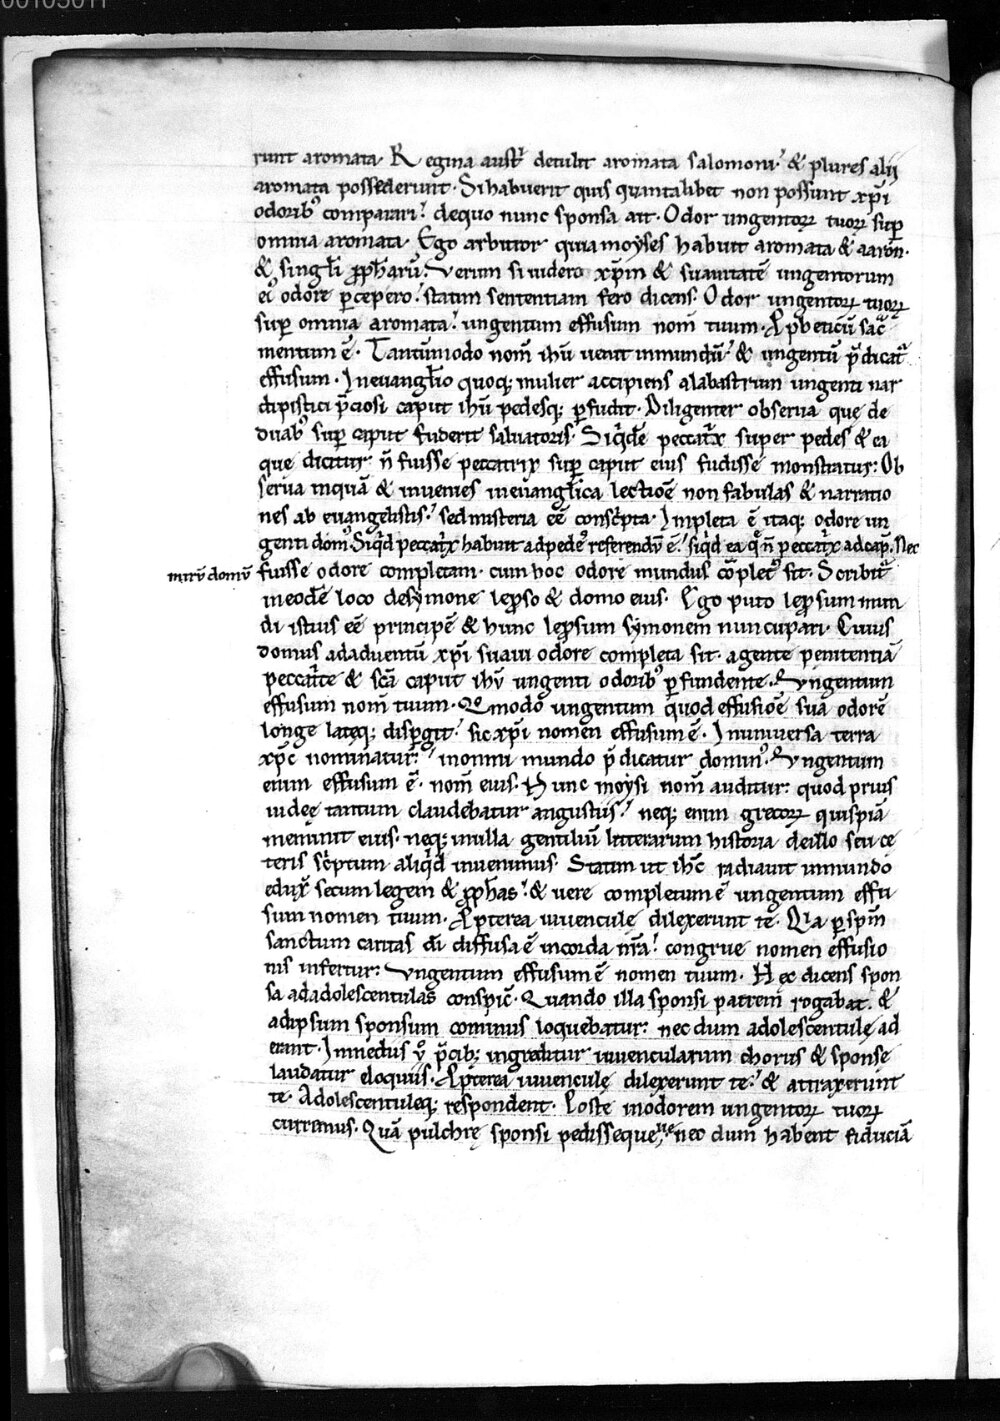 00103011
runt aromata. Regina austͥ detulit aromata salomoni.' & plures alij
aromata possederunt. Si habuerit quis quantalibet non possunt xp̄i
odorib᾽ comparari.' de quo nunc sponsa ait. Odor ungentoꝝ tuoꝝ suꝑ
omnia aromata. Ego arbitror quia moyses habuit aromata & aaron.
& singl̄i ꝓph̄arū. Verum si uidero xp̄m & suauitatē ungentorum
ei᾽ odore ꝑcepero.' statim sententiam fero dicens. Odor ungentoꝝ tuoꝝ
suꝑ omnia aromata.' ungentum effusum nom̄ tuum. ꝓpheticū sac̄
mentum ē. Tantūmodo nom̄ ih̄u uenit in mundū.' & ungentū p̄dicat᷑
effusum. In euangl̄io quoq; mulier accipiens alabastrum ungenti nar
di pistici p̄ciosi caput ih̄u pedesq; ꝑfudit. Diligenter obserua que de
duab᾽ suꝑ caput fuderit saluatoris. Siqͥdē peccatͥx super pedes & ea
que dicitur n̄ fuisse peccatrix suꝑ caput eius fudisse monstratur: Ob
serua inquā & inuenies in euangl̄ica lectiōe non fabulas & narratio
nes ab euangelistis.' sed misteria eē conscͥpta. Impleta ē itaq; odore un
genti dom᾽. Siqͥd peccatͥx habuit ad pedes referendū ē.' siqͥd ea q̄ n̄ peccatͥx ad cap̄. Nec
mirū domū fuisse odore completam. cum hoc odore mundus cōplet᾽ sit. Scribit᷑
in eodē loco de symone lep̄so & domo eius. Ego puto lep̄sum mun
di istius eē principē & hunc lep̄sum symonem nuncupari. Cuius
domus ad aduentū xp̄i suaui odore completa sit. agente penitentiā
peccatͥce & sc̄a caput ih̄u ungenti odorib᾽ ꝑfundente. Vngentum
effusum nom̄ tuum. Qͦmodo ungentum quod effusiōe sua odorē
longe lateq; disꝑgit.' sic xp̄i nomen effusum ē. In uniuersa terra
xp̄c nominatur.' in omni mundo p̄dicatur domin᾽. Vngentum
enim effusum ē. nom̄ eius. Hunc moysi nom̄ auditur: quod prius
iudeę tantum claudebatur angustiis.' neq; enim grecoꝝ quispiā
meminit eius. neq; in ulla gentiliū litterarum historia de illo seu ce
teris scͥptum aliqͥd inuenimus. Statim ut ih̄c radiauit in mundo
eduxͭ secum legem & ꝓph̄as.' & uere completum ē ungentum effu
sum nomen tuum. ꝓpterea iuuencule dilexerunt te. Qͥa ꝑ spm̄
sanctum caritas dī diffusa ē in corda nr̄a.' congrue nomen effusio
nis infertur: Vngentum effusum ē nomen tuum. Hęc dicens spon
sa ad adolescentulas conspic̄. Quando illa sponsi patrem rogabat. &
ad ipsum sponsum cominus loquebatur: nec dum adolescentulę ad
erant. In medus ͮͦ p̄cib; ingreditur iuuencularum chorus & sponsę
laudatur eloquiis. ꝓpterea iuuenculę dilexerunt te.' & attraxerunt
te. Adolescentulęq; respondent. Post te in odorem ungentoꝝ tuoꝝ
curramus. Quā pulchrę sponsi pedisseque, nec dum habent fiduciā